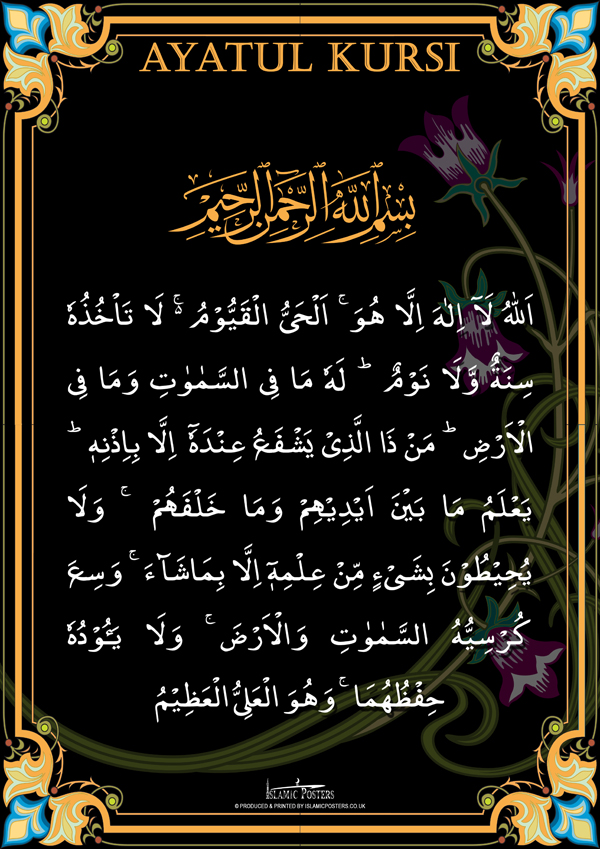 AYATUL KURSI
بِسْمِ اللّٰهِ الرَّحْمٰنِ الرَّحِيْمِ
اَللّٰهُ لَاۤ اِلٰهَ اِلَّا هُوَ ۚ اَلْحَىُّ الْقَيُّوْمُ ۬ۚ لَا تَاْخُذُهٗ
سِنَةٌ وَّلَا نَوْمٌ ؕ لَهٗ مَا فِى السَّمٰوٰتِ وَمَا فِى
الْاَرْضِ ؕ مَنْ ذَا الَّذِىْ يَشْفَعُ عِنْدَهٗۤ اِلَّا بِاِذْنِهٖ ؕ
يَعْلَمُ مَا بَيْنَ اَيْدِيْهِمْ وَمَا خَلْفَهُمْ ۚ وَلَا
يُحِيْطُوْنَ بِشَىْءٍ مِّنْ عِلْمِهٖۤ اِلَّا بِمَاشَآءَ ۚ وَسِعَ
كُرْسِيُّهُ السَّمٰوٰتِ وَالْاَرْضَ ۚ وَلَا يَـُٔوْدُهٗ
حِفْظُهُمَا ۚ وَهُوَ الْعَلِىُّ الْعَظِيْمُ
ISLAMIC POSTERS
© PRODUCED & PRINTED BY ISLAMICPOSTERS.CO.UK